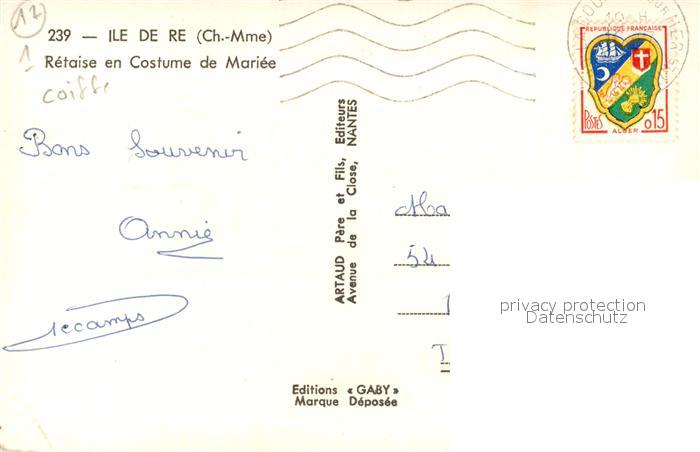 12
239 — ILE DE RE (Ch.-Mme)
1
Rétaise en Costume de Mariée
coiffe
Bons Souvenir
Annie
ARTAUD Père et Fils, Editeurs
Avenue de la Close, NANTES
Editions « GABY »
Marque Déposée
REPUBLIQUE FRANÇAISE
POSTES
ALGER
0,15
54
T
privacy protection
Datenschutz